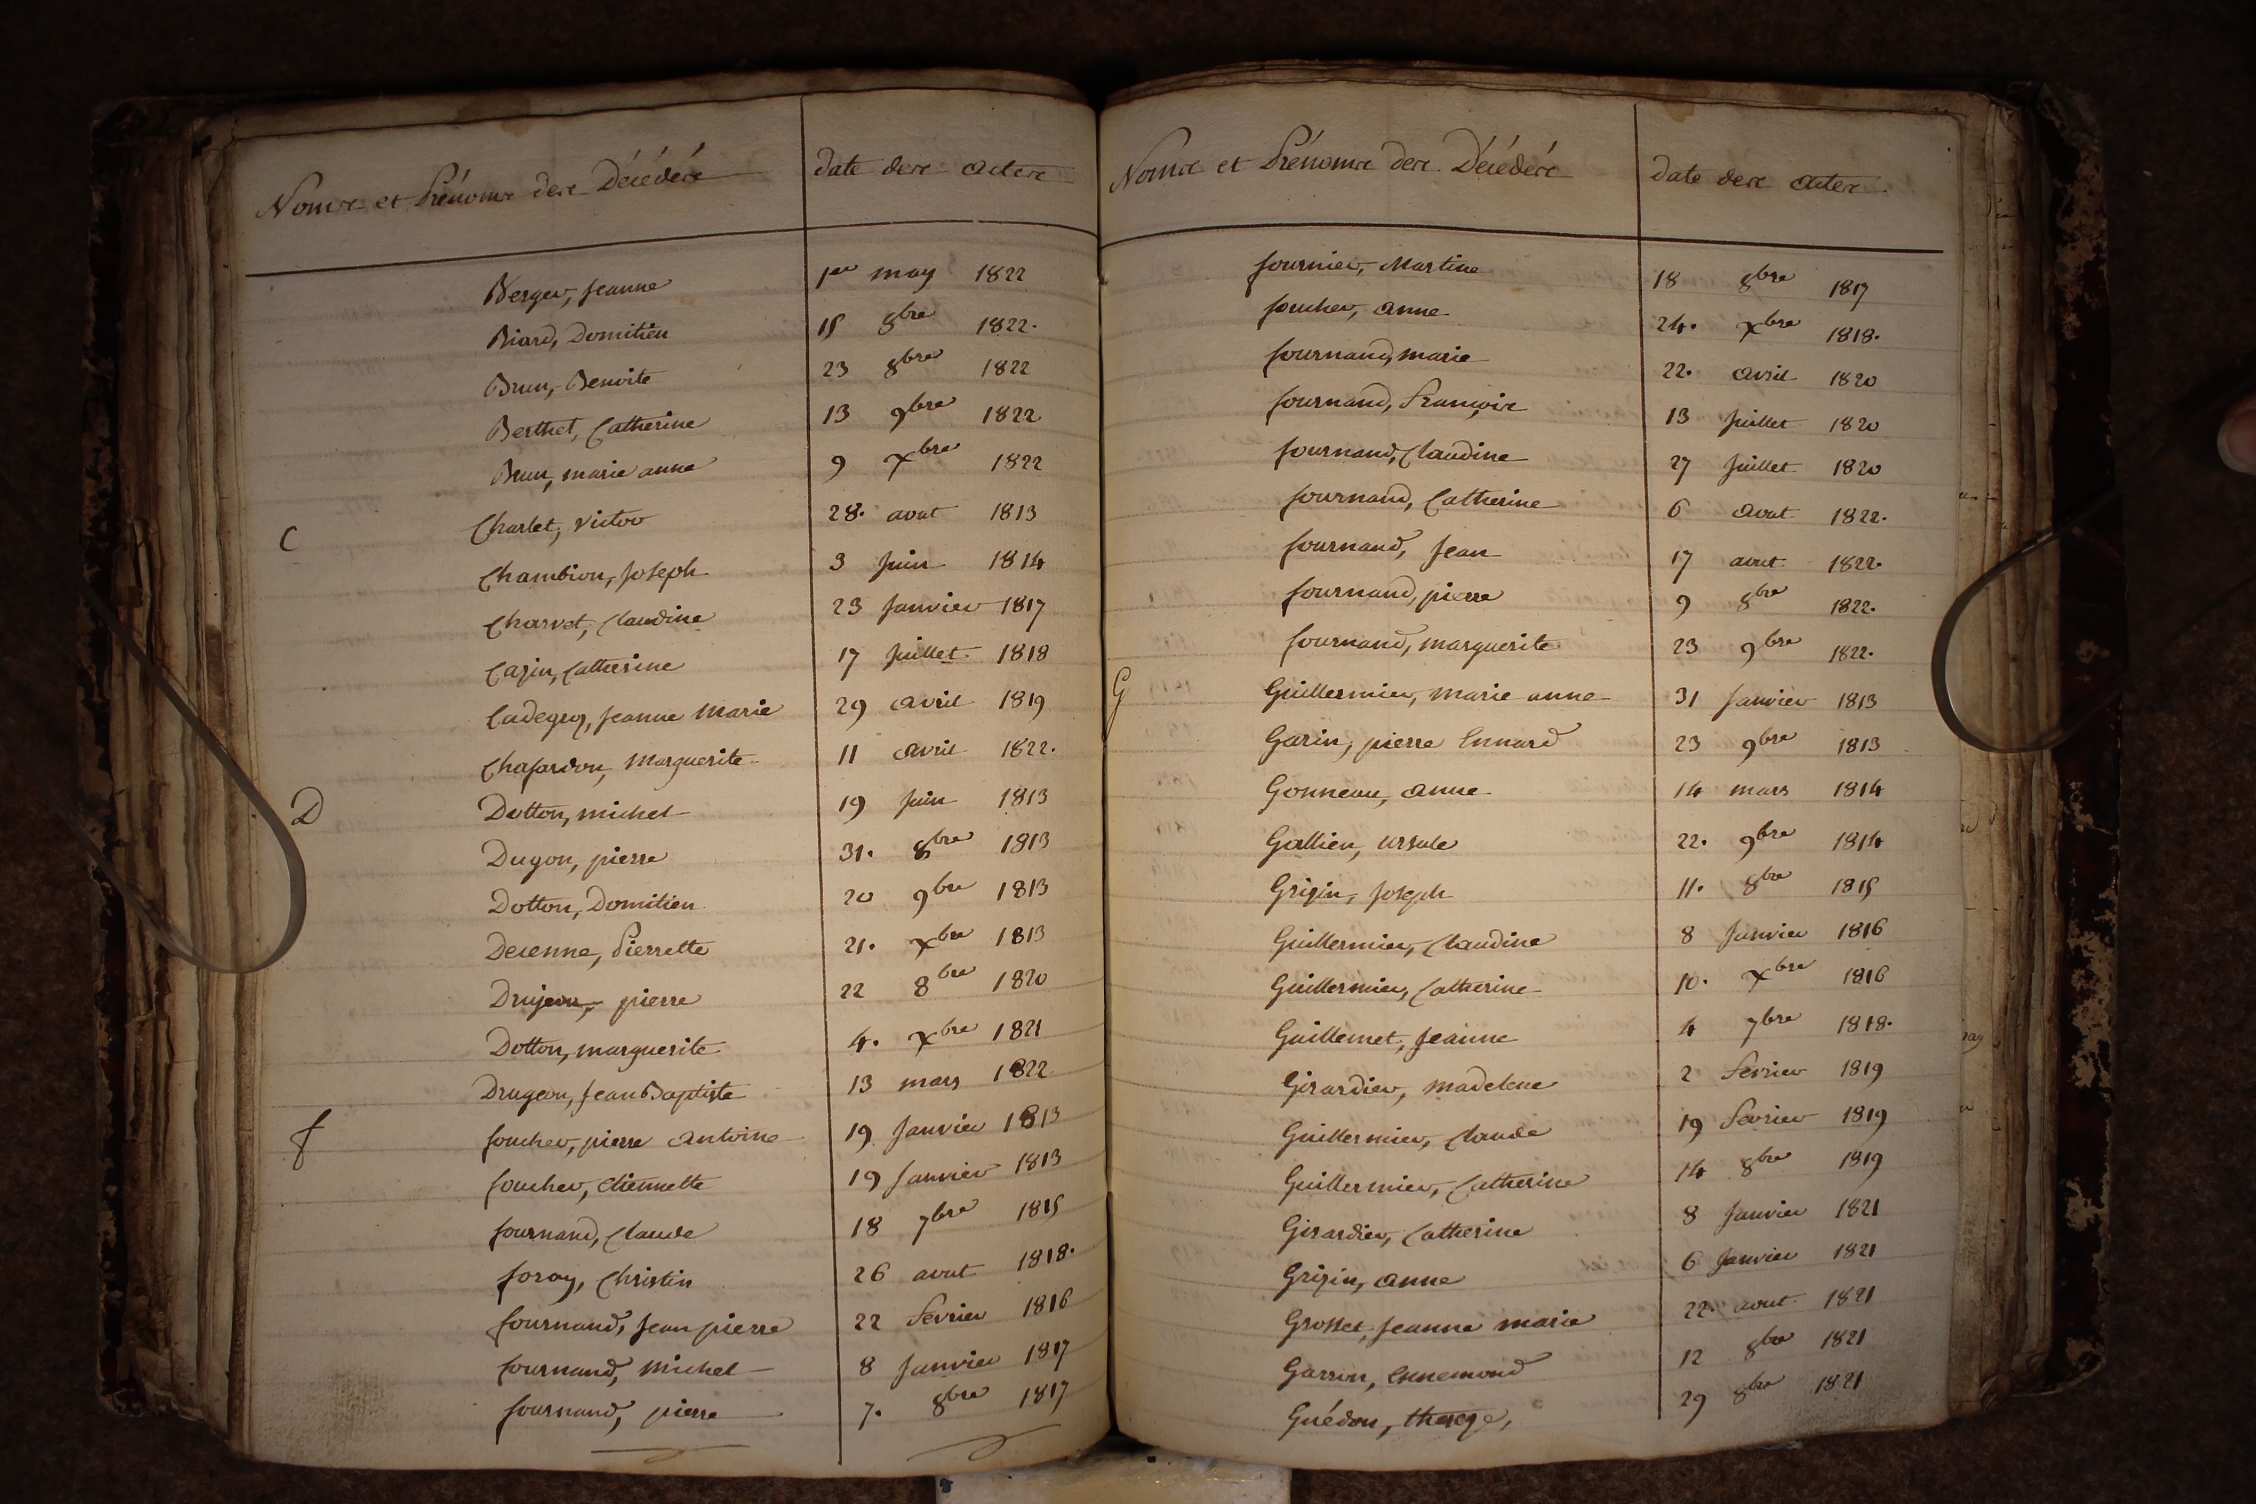 Noms et Prénoms des Décédés date des actes
Berger, Jeanne 1er may 1822
Biard, Domitien 15 8bre 1822.
Brun, Benoite 23 8bre 1822
Berthet, Catherine 13 9bre 1822
Brun, marie anne 9 Xbre 1822
C Charlet, victor 28. aout 1813
Chambion, Joseph 3 Juin 1814
Charvet, Claudine 23 Janvier 1817
Cazin, Catherine 17 Juillet 1818
Cadegros, Jeanne Marie 29 avril 1819
Chafardon, Marguerite 11 avril 1822.
D Dotton, michel 19 Juin 1813
Dugon, pierre 31. 8bre 1813
Dotton, Domitien 20 9bre 1813
Decenne, Pierrette 21. Xbre 1813
Drujeon, pierre 22 8bre 1820
Dotton, marguerite 4. Xbre 1821
Drugeon, Jean Baptiste 13 mars 1822
f foucher, pierre antoine 19 Janvier 1813
foucher, etiennette 19 Janvier 1813
fournand, Claude 18 7bre 1815
foray, Christin 26 aout 1818.
fournand, Jean pierre 22 fevrier 1816
fournand, michel 8 Janvier 1817
fournand, pierre 7. 8bre 1817
Noms et Prénoms des Décédés date des actes
fournier, Martine 18 8bre 1817
foucher, anne 24. Xbre 1818.
fournand, marie 22. avril 1820
fournand, François 13 Juillet 1820
fournand, Claudine 27 Juillet 1820
fournand, Catherine 6 aout 1822.
fournand, Jean 17 aout 1822.
fournand, pierre 9 8bre 1822.
fournand, marguerite 23 9bre 1822.
G Guillermier, marie anne 31 Janvier 1813
Garin, pierre Ennard 23 9bre 1813
Gonneau, anne 14 mars 1814
Gallien, ursule 22. 9bre 1814
Grizin, Joseph 11. 8bre 1815
Guillermier, Claudine 8 Janvier 1816
Guillermier, Catherine 10. Xbre 1816
Guillemet, Jeanne 4 7bre 1818.
Girardier, madelene 2 fevrier 1819
Guillermier, Claude 19 fevrier 1819
Guillermier, Catherine 14 8bre 1819
Girardier, Catherine 8 Janvier 1821
Grizin, anne 6 Janvier 1821
Grosset, Jeanne marie 22. aout 1821
Garson, Ennemond 12 8bre 1821
Guédon, thereze, 29 8bre 1821